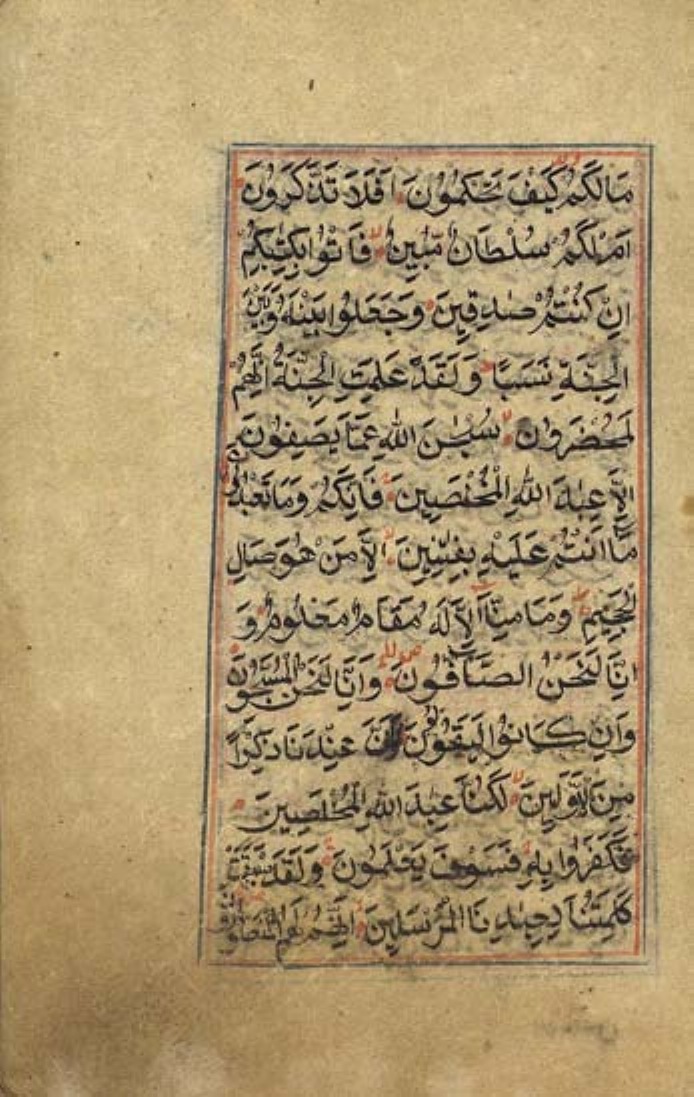 مَالَكُمْ كَيْفَ تَحْكُمُونَ اَفَلَا تَذَكَّرُونَ
اَمْ لَكُمْ سُلْطَانٌ مُّبِينٌ فَاْتُوا بِكِتٰبِكُمْ
اِنْ كُنْتُمْ صٰدِقِينَ وَجَعَلُوا بَيْنَهُ وَبَيْنَ
الْجِنَّةِ نَسَبًا وَلَقَدْ عَلِمَتِ الْجِنَّةُ اِنَّهُمْ
لَمُحْضَرُونَ سُبْحٰنَ اللّٰهِ عَمَّا يَصِفُونَ
اِلَّا عِبَادَ اللّٰهِ الْمُخْلَصِينَ فَاِنَّكُمْ وَمَا تَعْبُدُونَ
مَا اَنْتُمْ عَلَيْهِ بِفٰتِنِينَ اِلَّا مَنْ هُوَ صَالِ
الْجَحِيمِ وَمَا مِنَّا اِلَّا لَهُ مَقَامٌ مَعْلُومٌ وَ
اِنَّا لَنَحْنُ الصَّافُّونَ وَاِنَّا لَنَحْنُ الْمُسَبِّحُونَ
وَاِنْ كَانُوا لَيَقُولُونَ لَوْ اَنَّ عِنْدَنَا ذِكْرًا
مِنَ الْاَوَّلِينَ لَكُنَّا عِبَادَ اللّٰهِ الْمُخْلَصِينَ
فَكَفَرُوا بِهِ فَسَوْفَ يَعْلَمُونَ وَلَقَدْ سَبَقَتْ
كَلِمَتُنَا لِعِبَادِنَا الْمُرْسَلِينَ اِنَّهُمْ لَهُمُ الْمَنْصُورُونَ